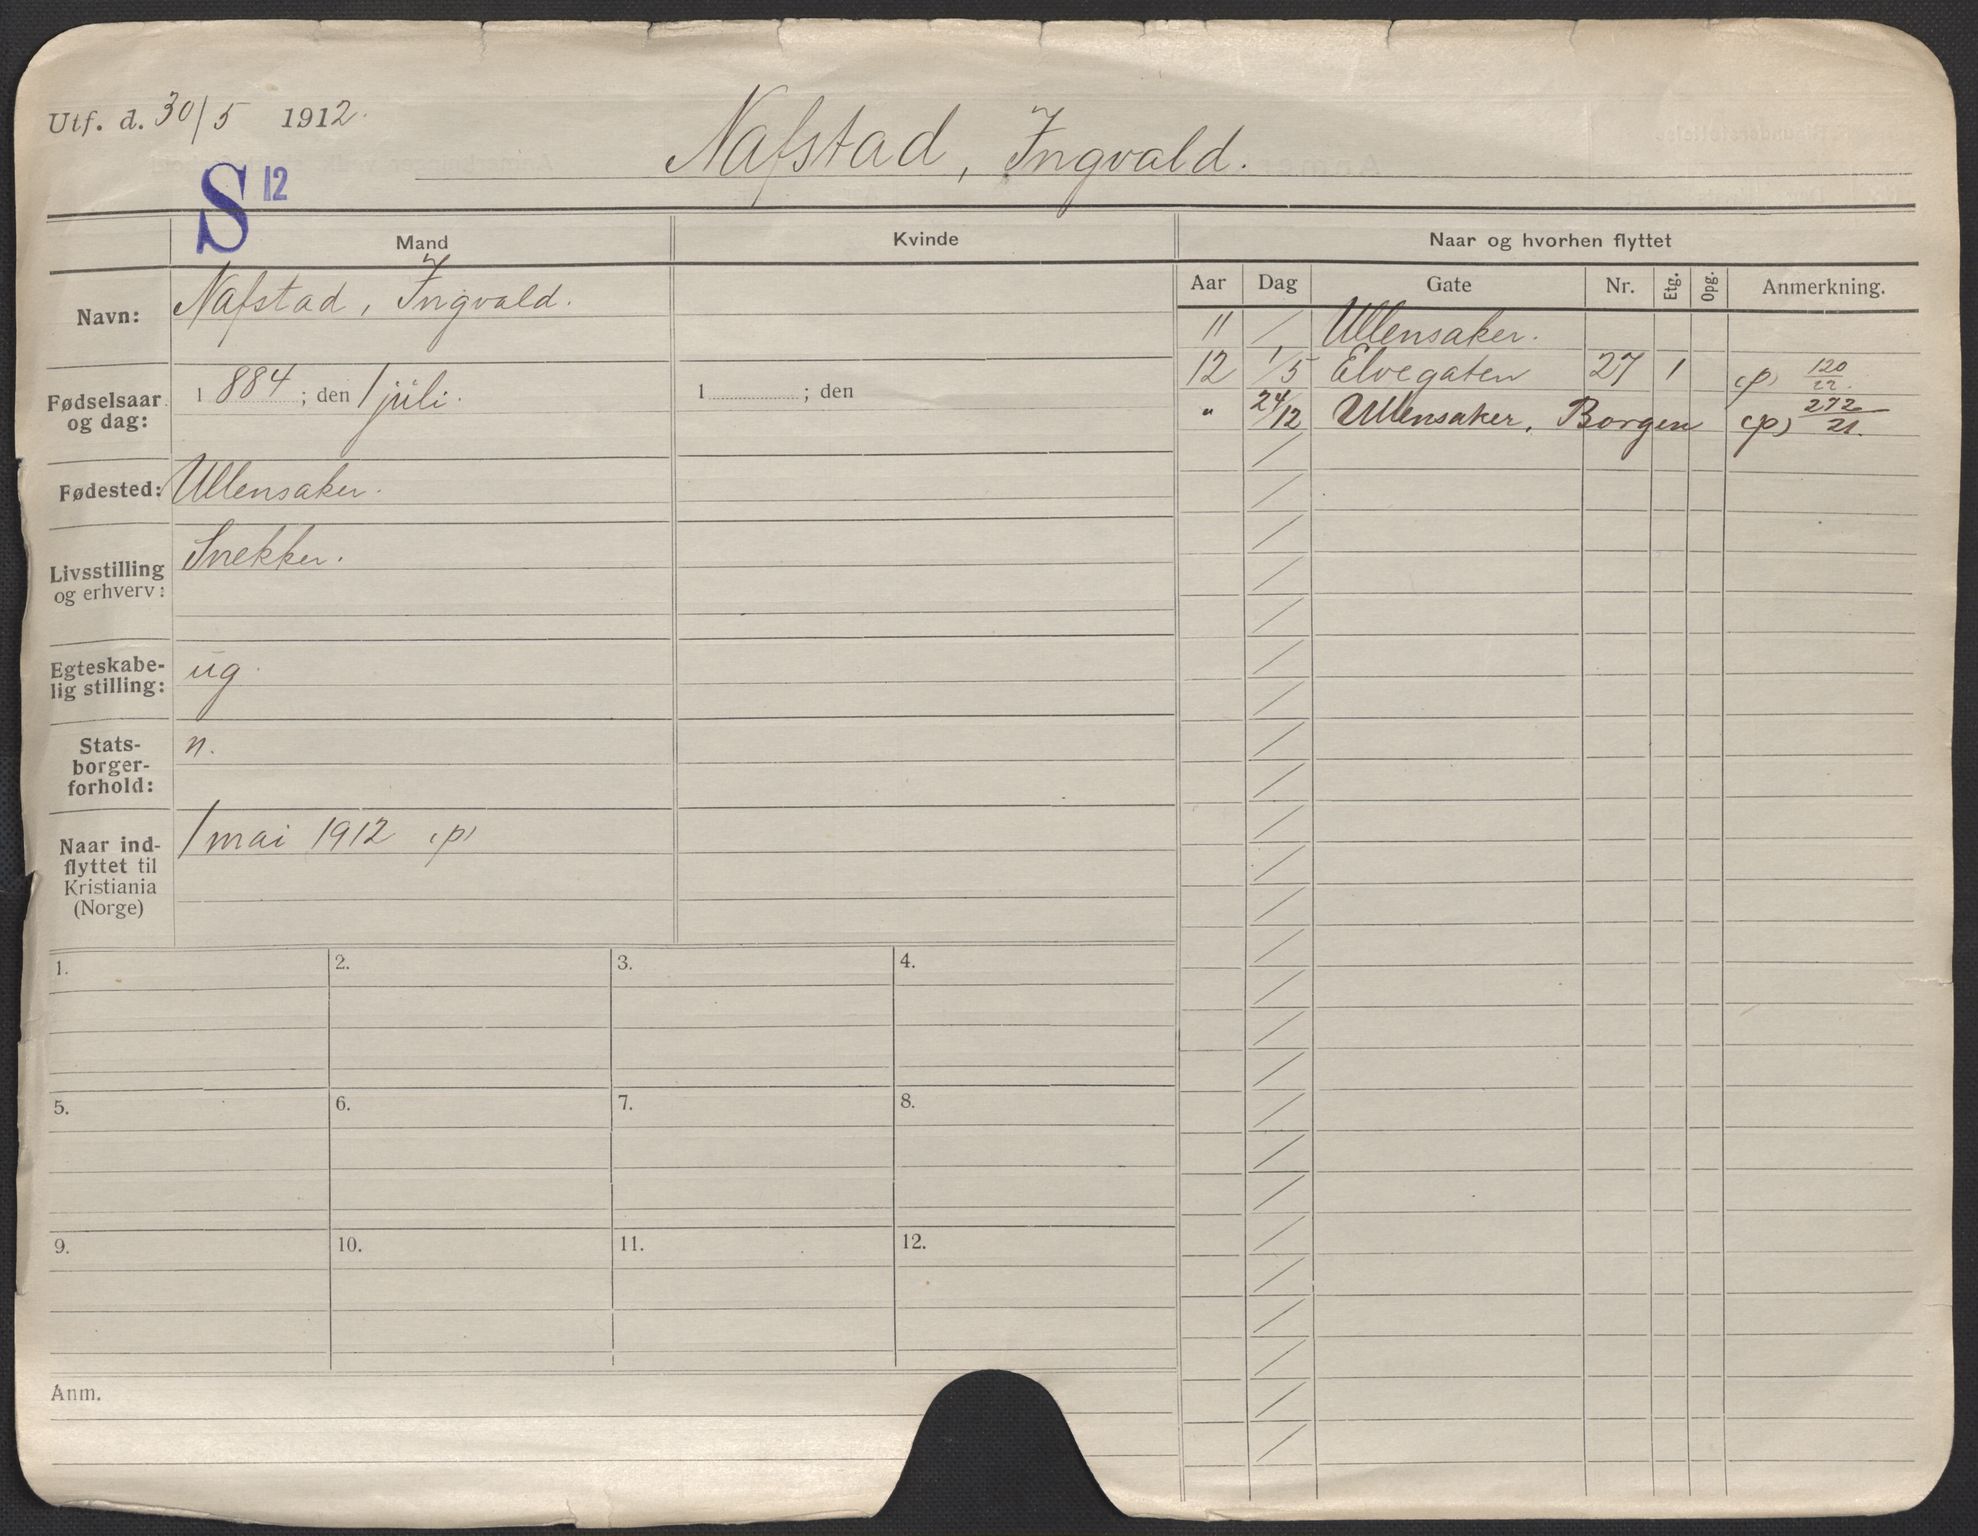 Utf. d. 30/5 1912.
Nafstad, Ingvald.
S 12
Mand
Kvinde
Navn:
Nafstad, Ingvald.
Fødselsaar og dag:
1884; den 1 juli.
1 ; den
Fødested:
Ullensaker.
Livsstilling og erhverv:
Snekker.
Egteskabe-
lig stilling:
ug.
Stats-
borger-
forhold:
n.
Naar ind-
flyttet til
Kristiania
(Norge)
1 mai 1912 (p)
1. 2. 3. 4.
5. 6. 7. 8.
9. 10. 11. 12.
Anm.
Naar og hvorhen flyttet
Aar Dag Gate Nr. Etg. Opg. Anmerkning.
11 / Ullensaker.
12 1/5 Elvegaten 27 1 (p) 120/22.
" 24/12 Ullensaker, Borgen (p) 272/21.